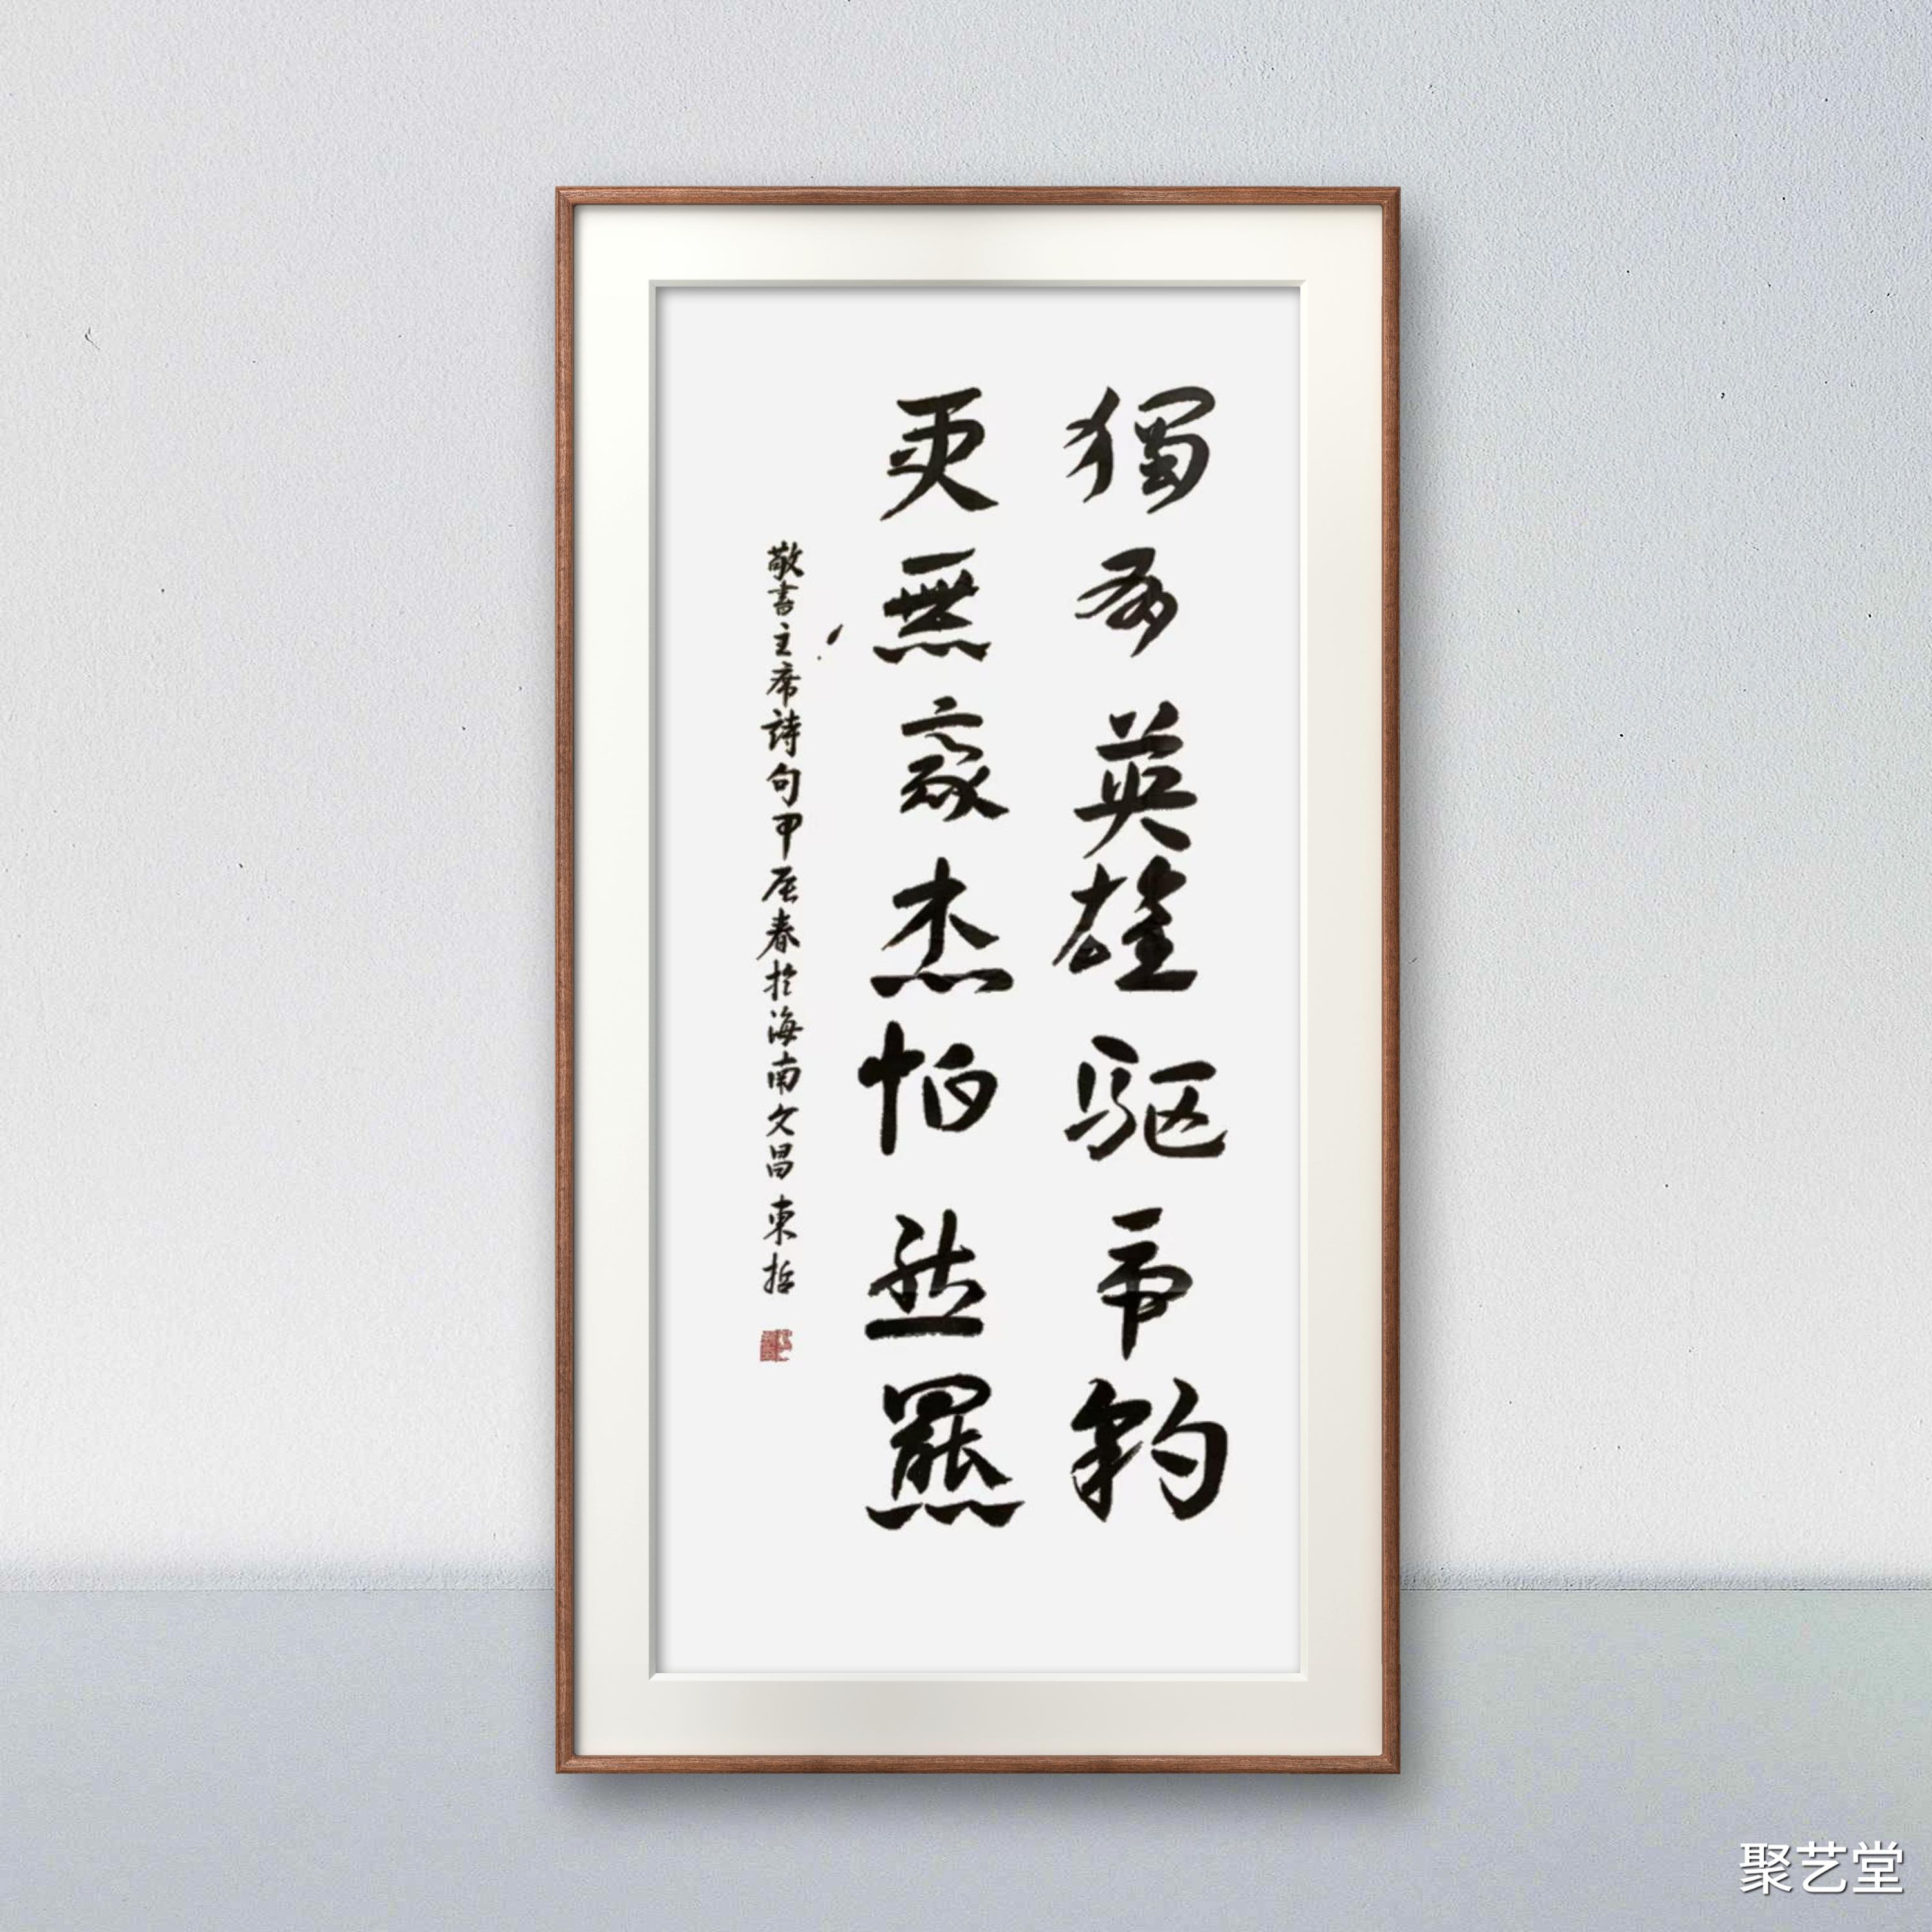 獨有英雄驱虎豹
更無豪杰怕熊羆
敬書主席詩句甲辰春於海南文昌 東哲
聚艺堂